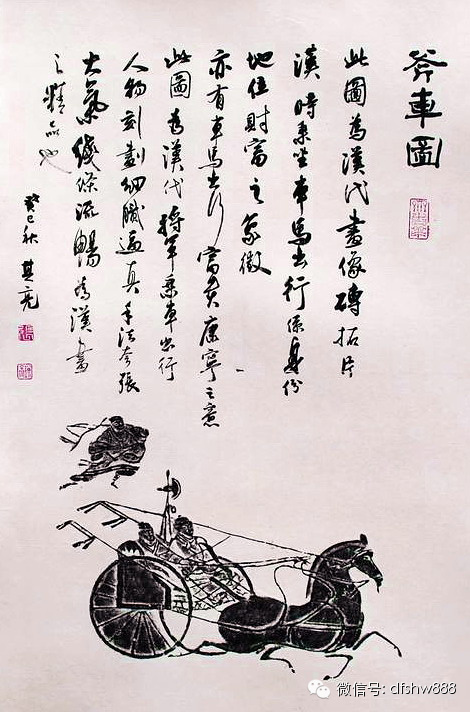 斧車圖
此圖為漢代畫像磚拓片
漢時乘坐車馬出行係身份
地位財富之象徵
亦有車馬出行富貴康寧之意
此圖為漢代將軍乘車出行
人物刻劃細膩逼真手法夸張
大氣綫條流暢為漢畫
之精品也
癸巳秋 其亮
微信号: dfshw888